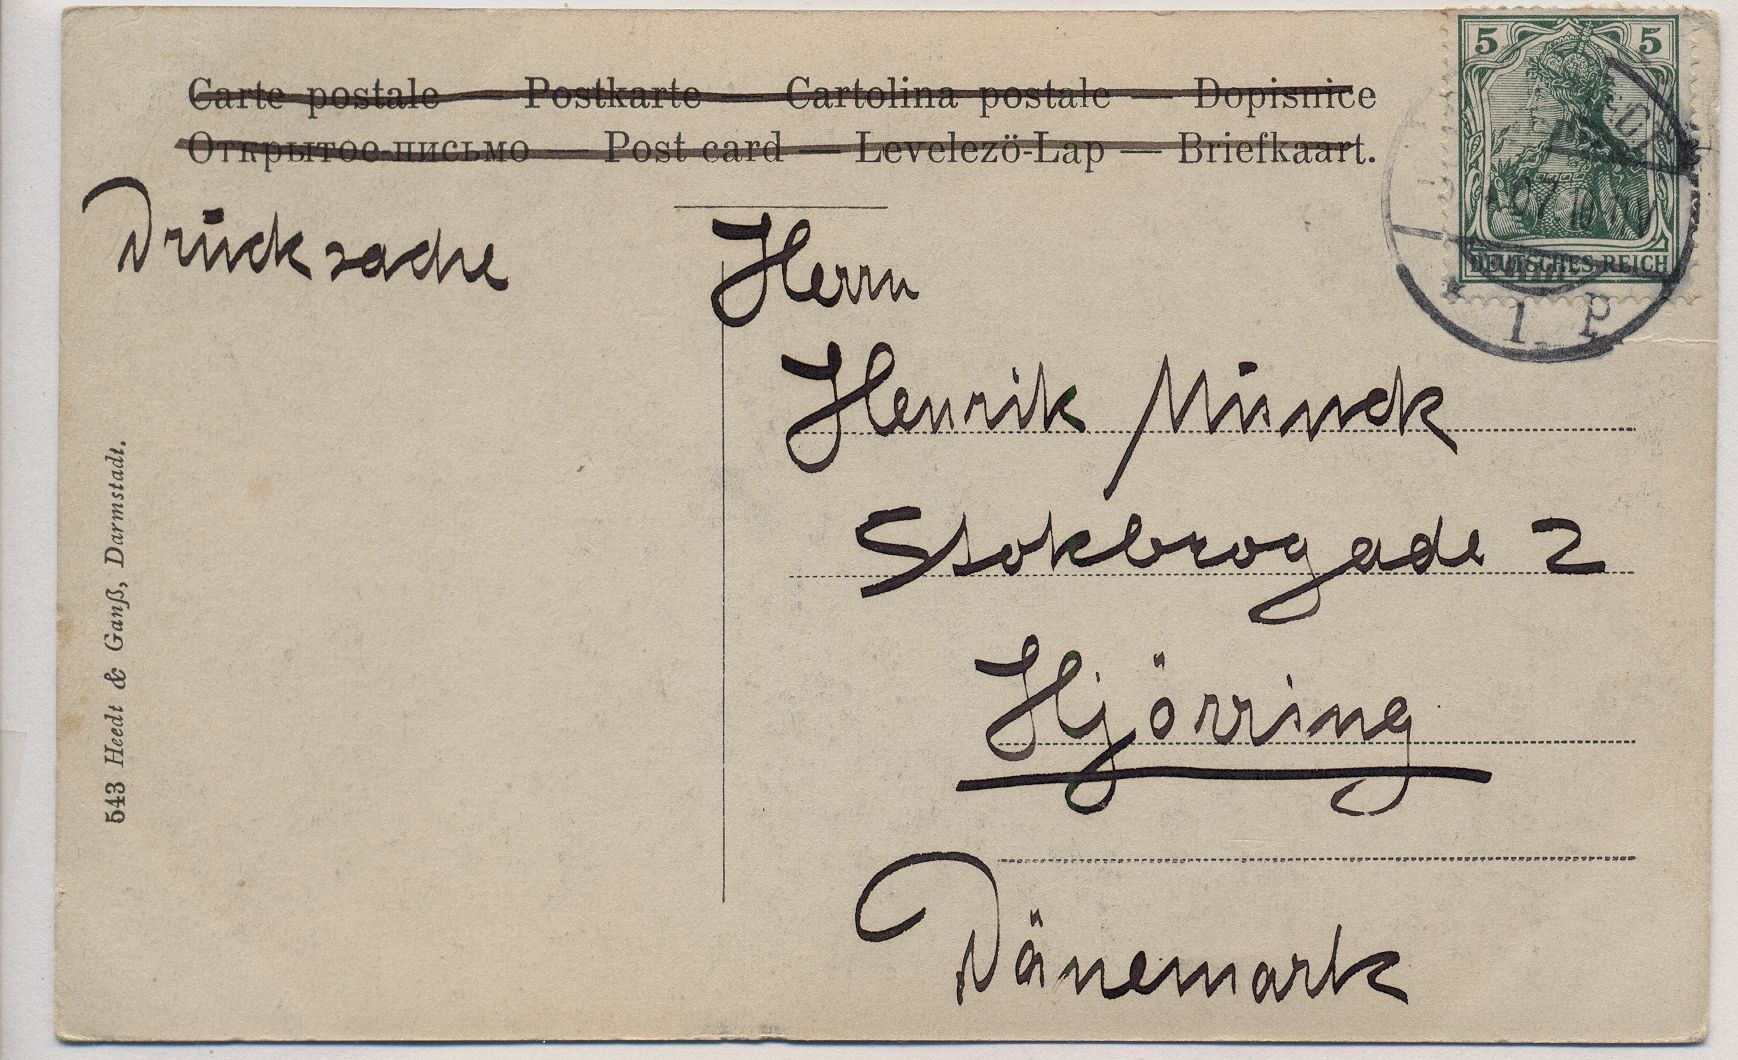 Carte postale — Postkarte — Cartolina postale — Dopisnice
Открытое письмо — Post card — Levelezö-Lap — Briefkaart.
Drucksache
Herrn
Henrik Munck
Stokbrogade 2
Hjörring
Dänemark
543 Heedt & Ganß, Darmstadt.
5 5
DEUTSCHES REICH
* 1 P.